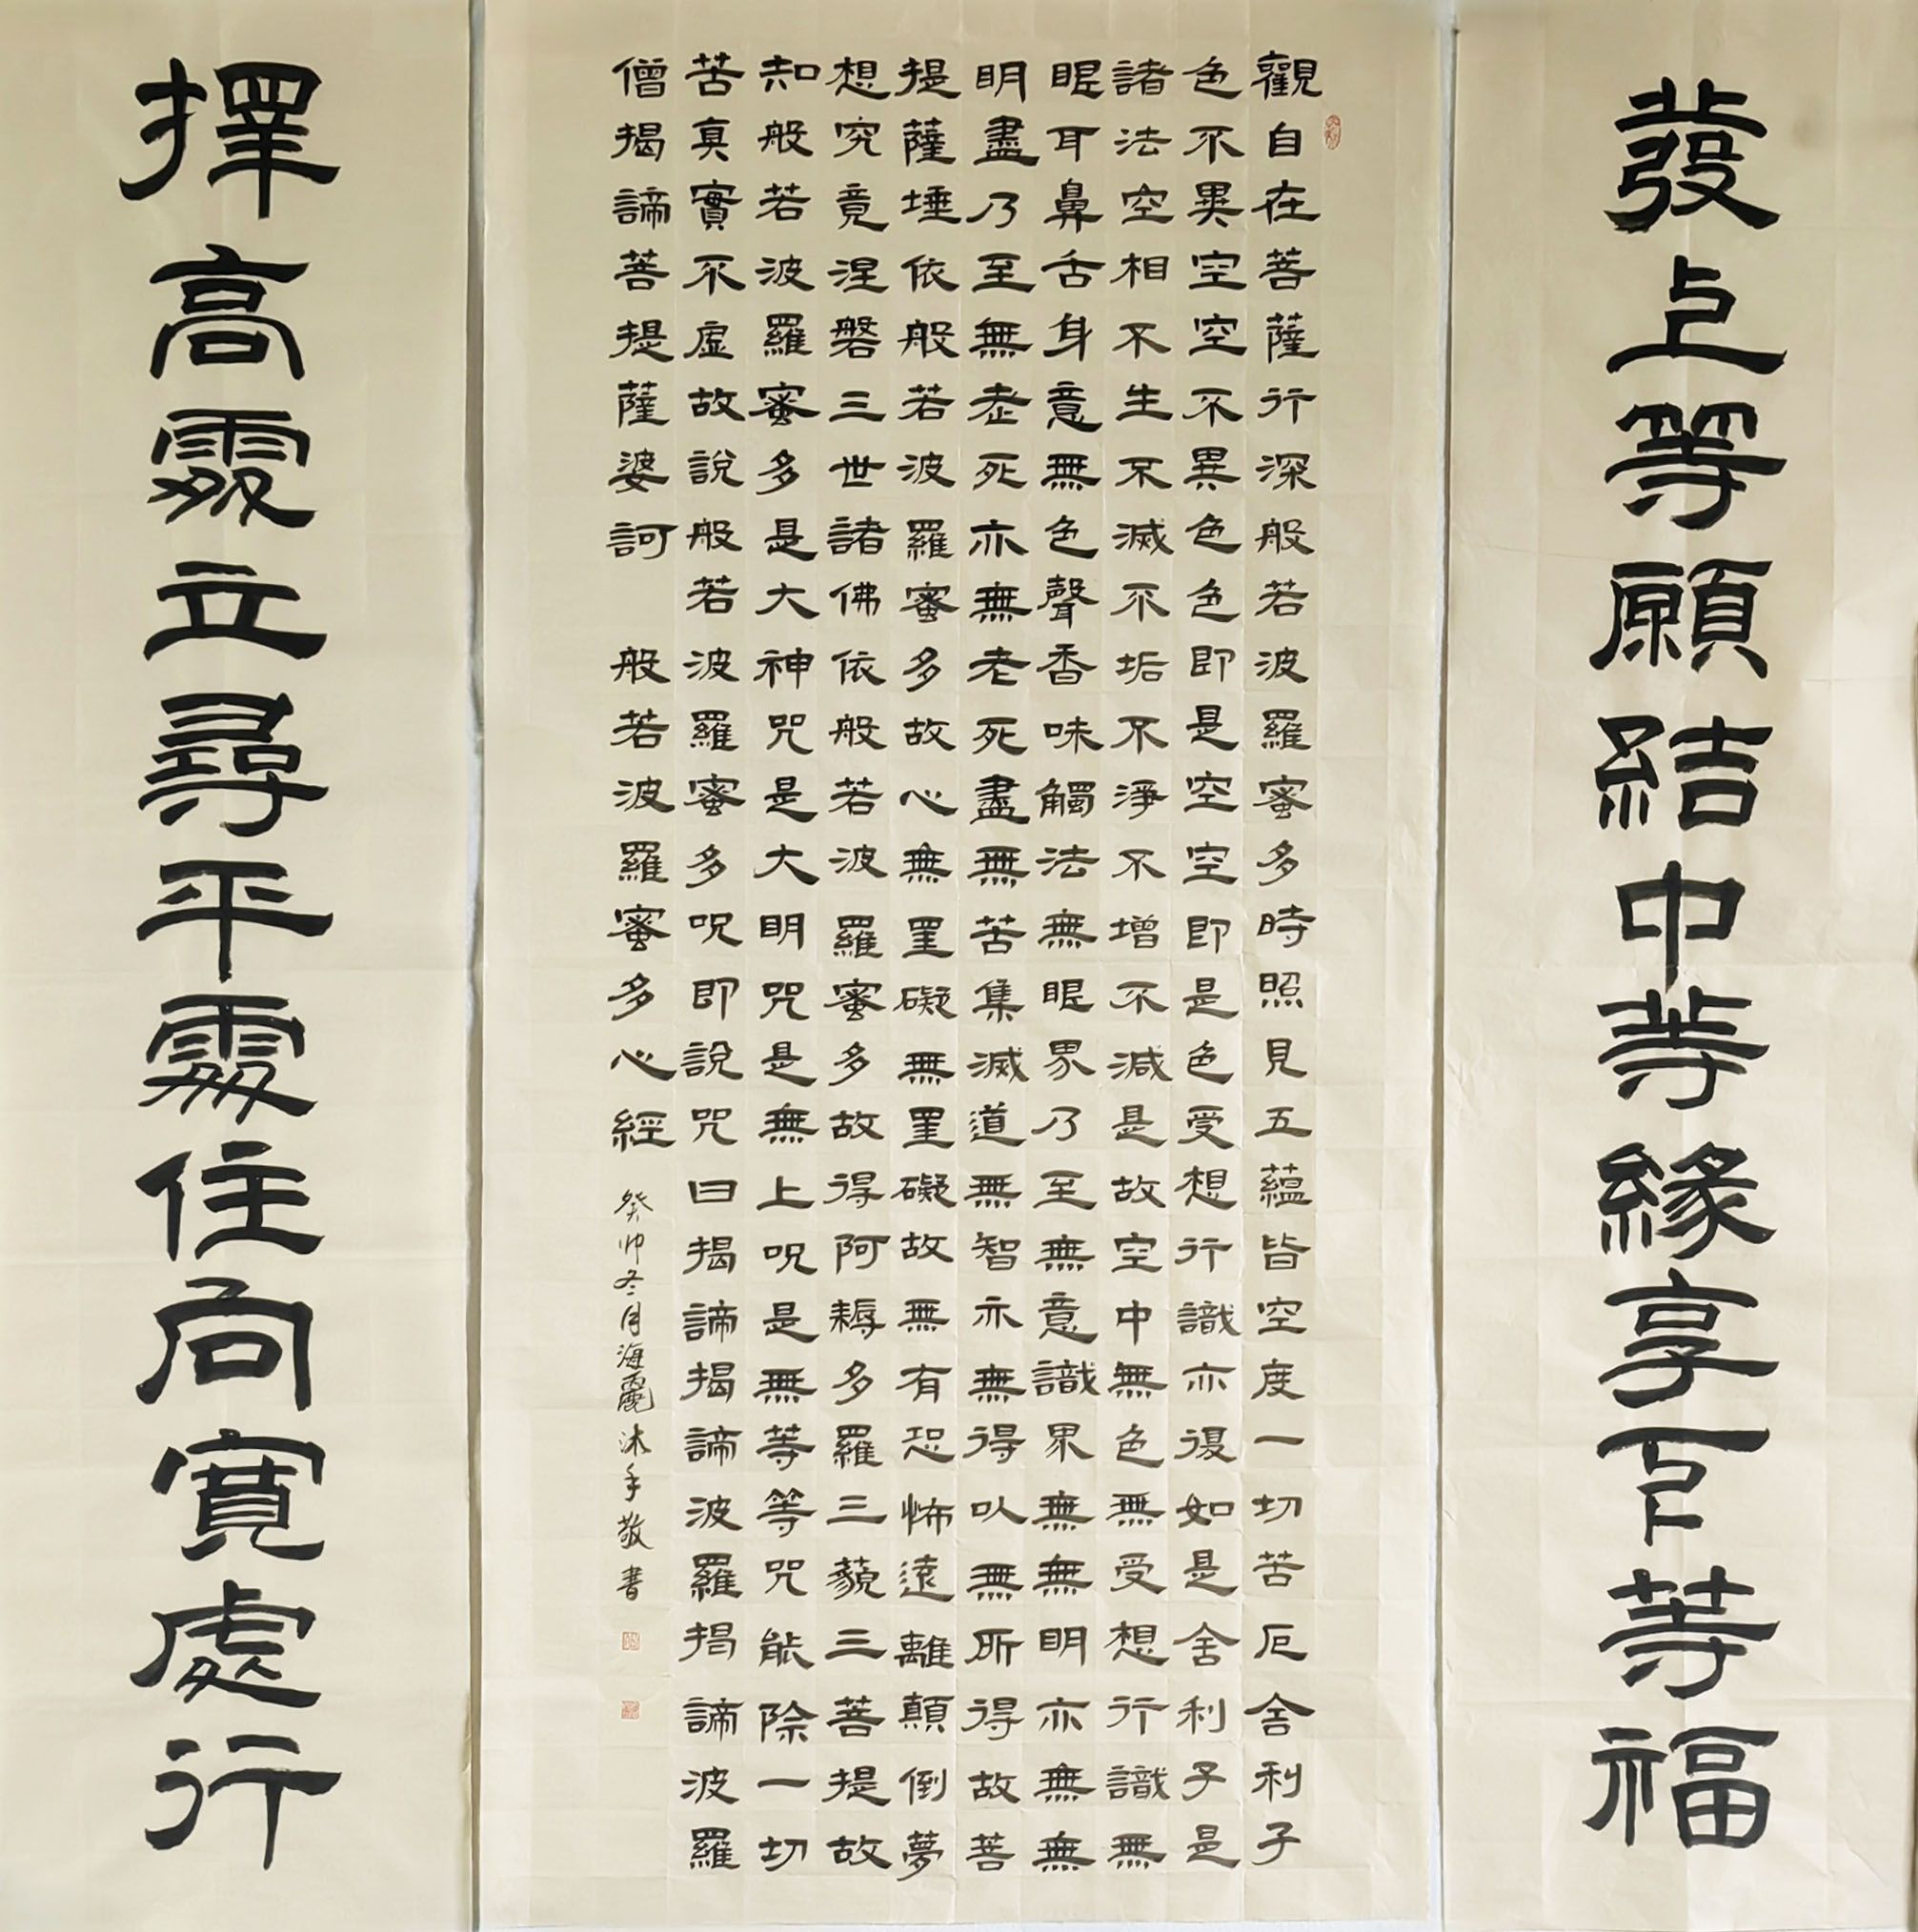 發上等願結中等緣享下等福
觀自在菩薩行深般若波羅蜜多時照見五蘊皆空度一切苦厄舍利子
色不異空空不異色色即是空空即是色受想行識亦復如是舍利子是
諸法空相不生不滅不垢不淨不增不減是故空中無色無受想行識無
眼耳鼻舌身意無色聲香味觸法無眼界乃至無意識界無無明亦無無
明盡乃至無老死亦無老死盡無苦集滅道無智亦無得以無所得故菩
提薩埵依般若波羅蜜多故心無罣礙無罣礙故無有恐怖遠離顛倒夢
想究竟涅磐三世諸佛依般若波羅蜜多故得阿耨多羅三藐三菩提故
知般若波羅蜜多是大神咒是大明咒是無上呪是無等等咒能除一切
苦真實不虛故說般若波羅蜜多呪即說咒曰揭諦揭諦波羅揭諦波羅
僧揭諦菩提薩婆訶 般若波羅蜜多心經 癸卯冬月海麗沐手敬書
擇高處立尋平處住向寬處行